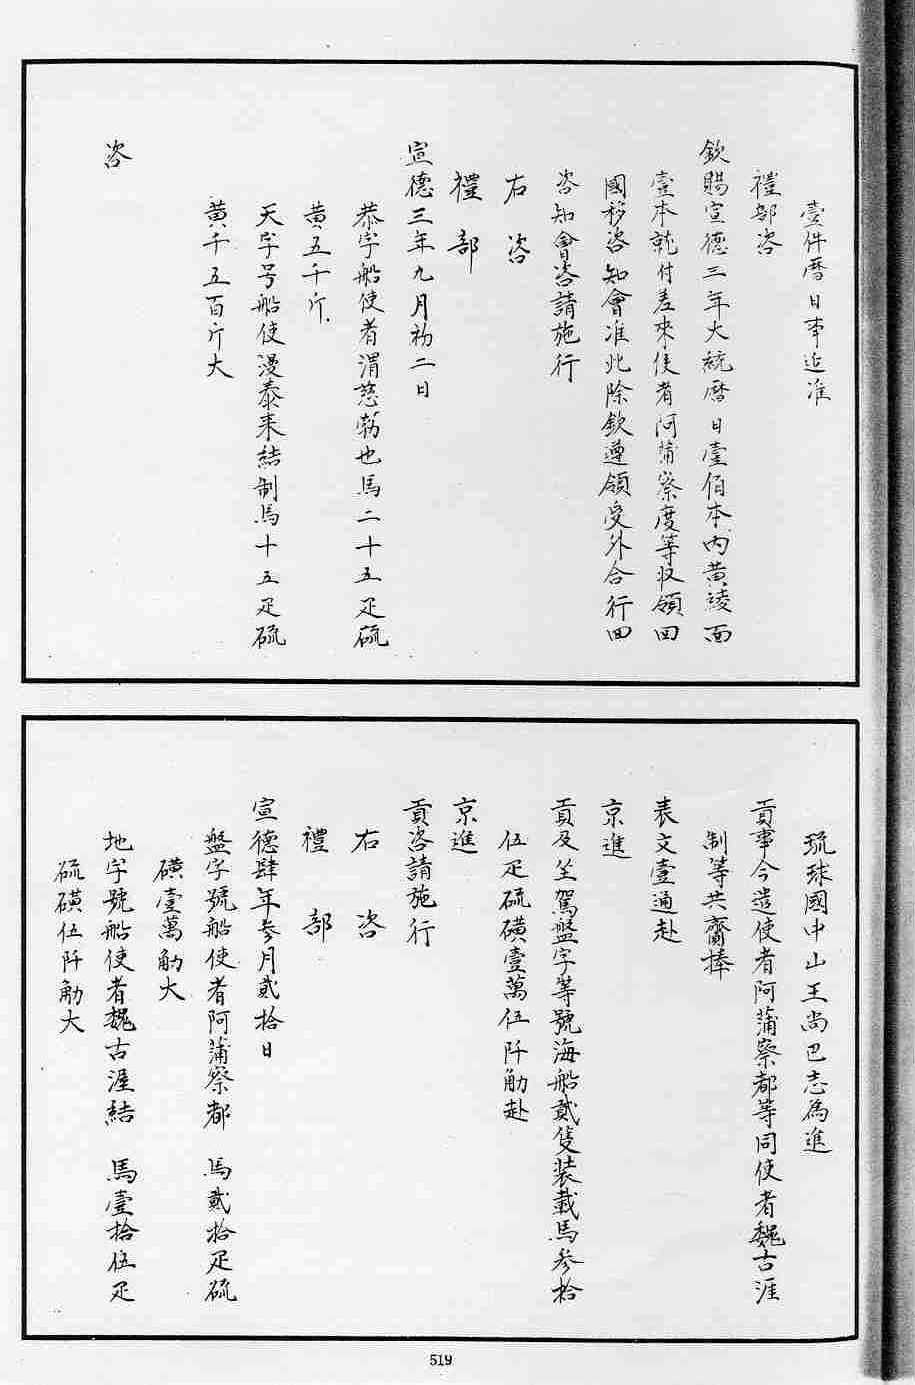 壹件曆日事近准
禮部咨
欽賜宣德三年大統曆日壹佰本內黃綾面
壹本就付差來使者阿蒲察度等収領回
國移咨知會准此除欽遵領受外合行回
咨知會咨請施行
右咨
禮部
宣德三年九月初二日
恭字船使者渭慈勃也馬二十五疋硫
黄五千斤
天字号船使漫泰来結制馬十五疋硫
黄千五百斤大
咨
琉球國中山王尚巴志為進
貢事今遣使者阿蒲察都等同使者魏古渥
制等共齎捧
表文壹通赴
京進
貢及坐駕盤字等號海船貳隻装載馬参拾
伍疋硫磺壹萬伍阡觔赴
京進
貢咨請施行
右咨
禮部
宣德肆年参月貳拾日
盤字號船使者阿蒲察都 馬貳拾疋硫
磺壹萬觔大
地字號船使者魏古渥結 馬壹拾伍疋
硫磺伍阡觔大
519